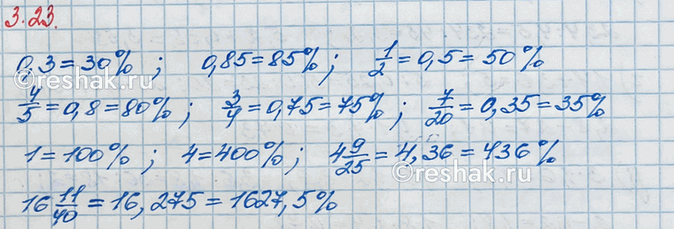 3.23.
0,3=30%; 0,85=85%; 1/2=0,5=50%
4/5=0,8=80%; 3/4=0,75=75%; 7/20=0,35=35%
1=100%; 4=400%; 4 9/25=4,36=436%
16 11/40=16,275=1627,5%
©reshak.ru
©reshak.ru